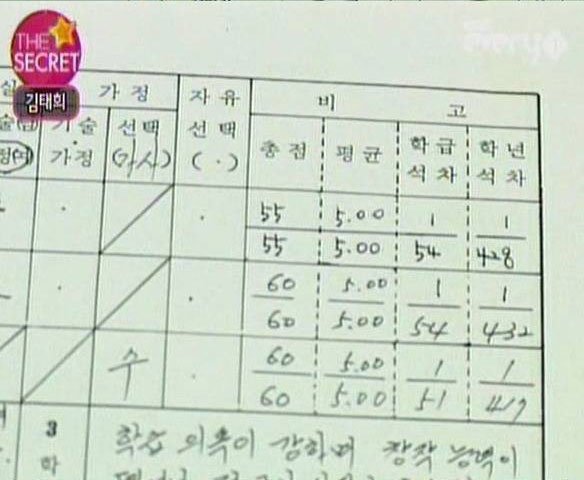 THE
SECRET
김태희
Mnet
실 가정 자유 비 고
기술 선택 선택 총점 평균 학급 학년
가정 (가사) ( . ) 석차 석차
55 5.00 1 1
55 5.00 54 428
60 5.00 1 1
60 5.00 54 432
수 60 5.00 1 1
60 5.00 51 417
3 학습 의욕이 강하며 창작 능력이
학